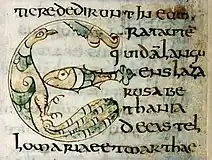 ticredediruntineum
Erataute
quidalangu
enslaza
rusabe
thania
decastel
lomariaeetmarthae